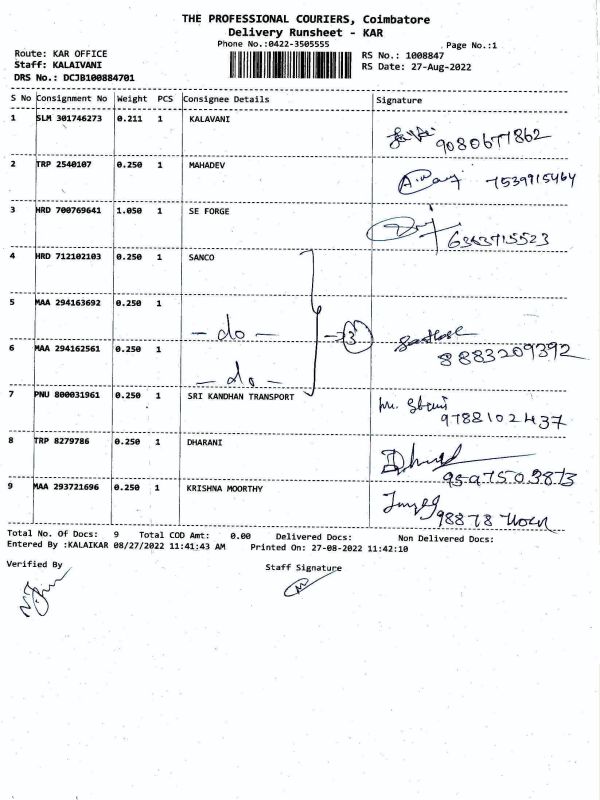 THE PROFESSIONAL COURIERS, Coimbatore
Delivery Runsheet - KAR
Phone No.:0422-3505555
Page No.:1
Route: KAR OFFICE
RS No.: 1008847
Staff: KALAIVANI
RS Date: 27-Aug-2022
DRS No.: DCJB100884701
S No Consignment No Weight PCS Consignee Details Signature
1 SLM 301746273 0.211 1 KALAVANI
9080677862
2 TRP 2540107 0.250 1 MAHADEV
7539915464
3 HRD 700769641 1.050 1 SE FORGE
6363715523
4 HRD 712102103 0.250 1 SANCO
5 MAA 294163692 0.250 1
- do -
3
6 MAA 294162561 0.250 1
8883209392
- do -
7 PNU 800031961 0.250 1 SRI KANDHAN TRANSPORT
9788102437
8 TRP 8279786 0.250 1 DHARANI
9597503873
9 MAA 293721696 0.250 1 KRISHNA MOORTHY
98878
Total No. Of Docs: 9 Total COD Amt: 0.00 Delivered Docs: Non Delivered Docs:
Entered By :KALAIKAR 08/27/2022 11:41:43 AM Printed On: 27-08-2022 11:42:10
Verified By
Staff Signature